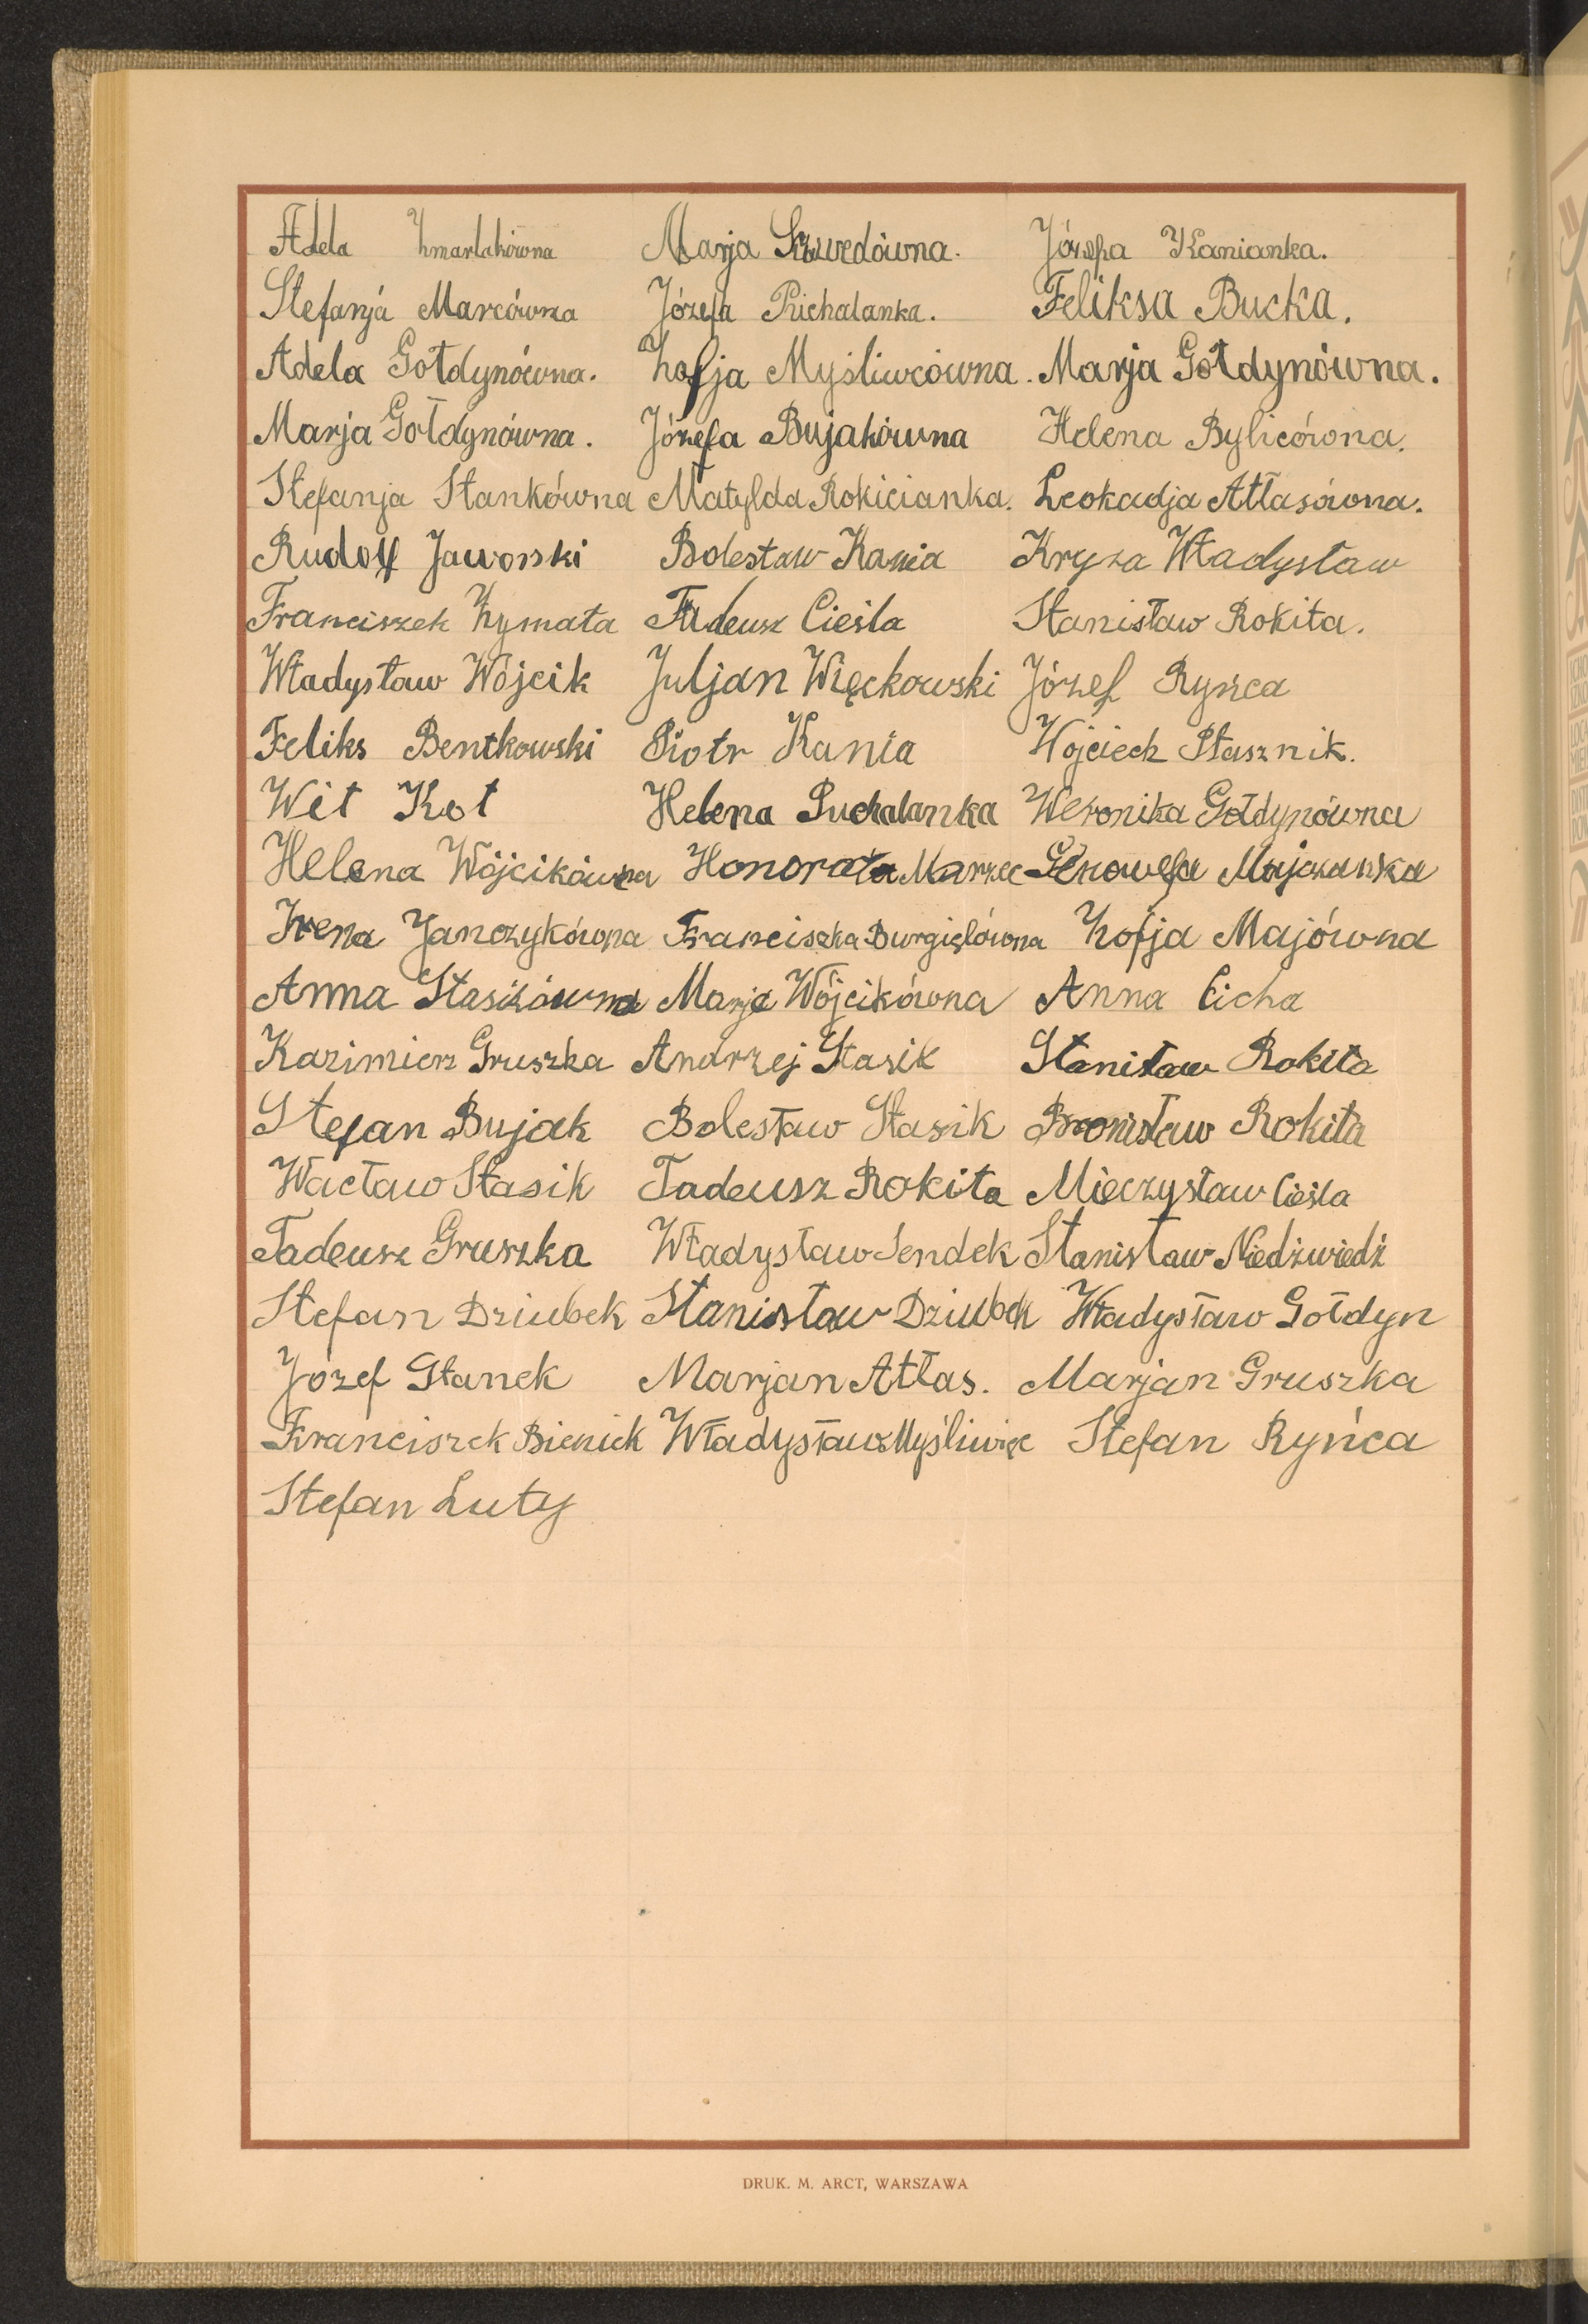 Adela Zmarlakówna Marja Szwedówna. Józefa Kanianka.
Stefanja Marcówna Józefa Puchalanka. Feliksa Bucka.
Adela Gołdynówna. Zofja Myśliwcówna. Marja Gołdynówna.
Marja Gołdynówna. Józefa Bujakówna Helena Bylicówna.
Stefanja Stankówna Matylda Rokicianka. Leokadja Atłasówna.
Rudolf Jaworski Bolesław Kania Kryza Władysław
Franciszek Zymata Tadeusz Cieśla Stanisław Rokita.
Władysław Wójcik Juljan Więckowski Józef Ryńca
Feliks Bentkowski Piotr Kania Wojciech Ptasznik.
Wit Kot Helena Puchalanka Weronika Gołdynówna
Helena Wójcikówna Honorata Marzec Genowefa Majczanka
Irena Janczykówna Franciszka Burgielówna Zofja Majówna
Anna Stasikówna Marja Wójcikówna Anna Cicha
Kazimierz Gruszka Andrzej Stasik Stanisław Rokita
Stefan Bujak Bolesław Stasik Bronisław Rokita
Wacław Stasik Tadeusz Rokita Mieczysław Cieśla
Tadeusz Gruszka Władysław Sendek Stanisław Niedźwiedź
Stefan Dziubek Stanisław Dziubek Władysław Gołdyn
Józef Stanek Marjan Atłas. Marjan Gruszka
Franciszek Bieniek Władysław Myśliwiec Stefan Ryńca
Stefan Luty
DRUK. M. ARCT, WARSZAWA